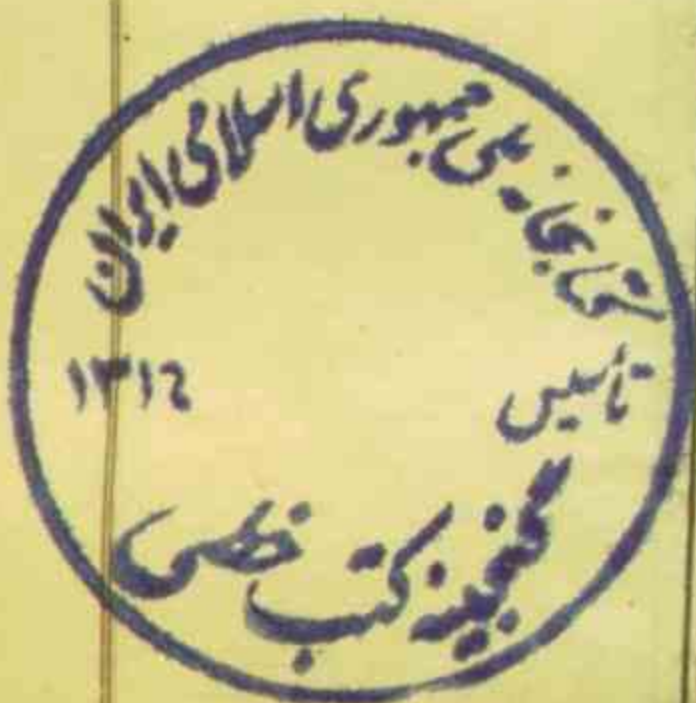 کتابخانه ملی جمهوری اسلامی ایران
تأسیس ۱۳۱۶
گنجینه کتب خطی